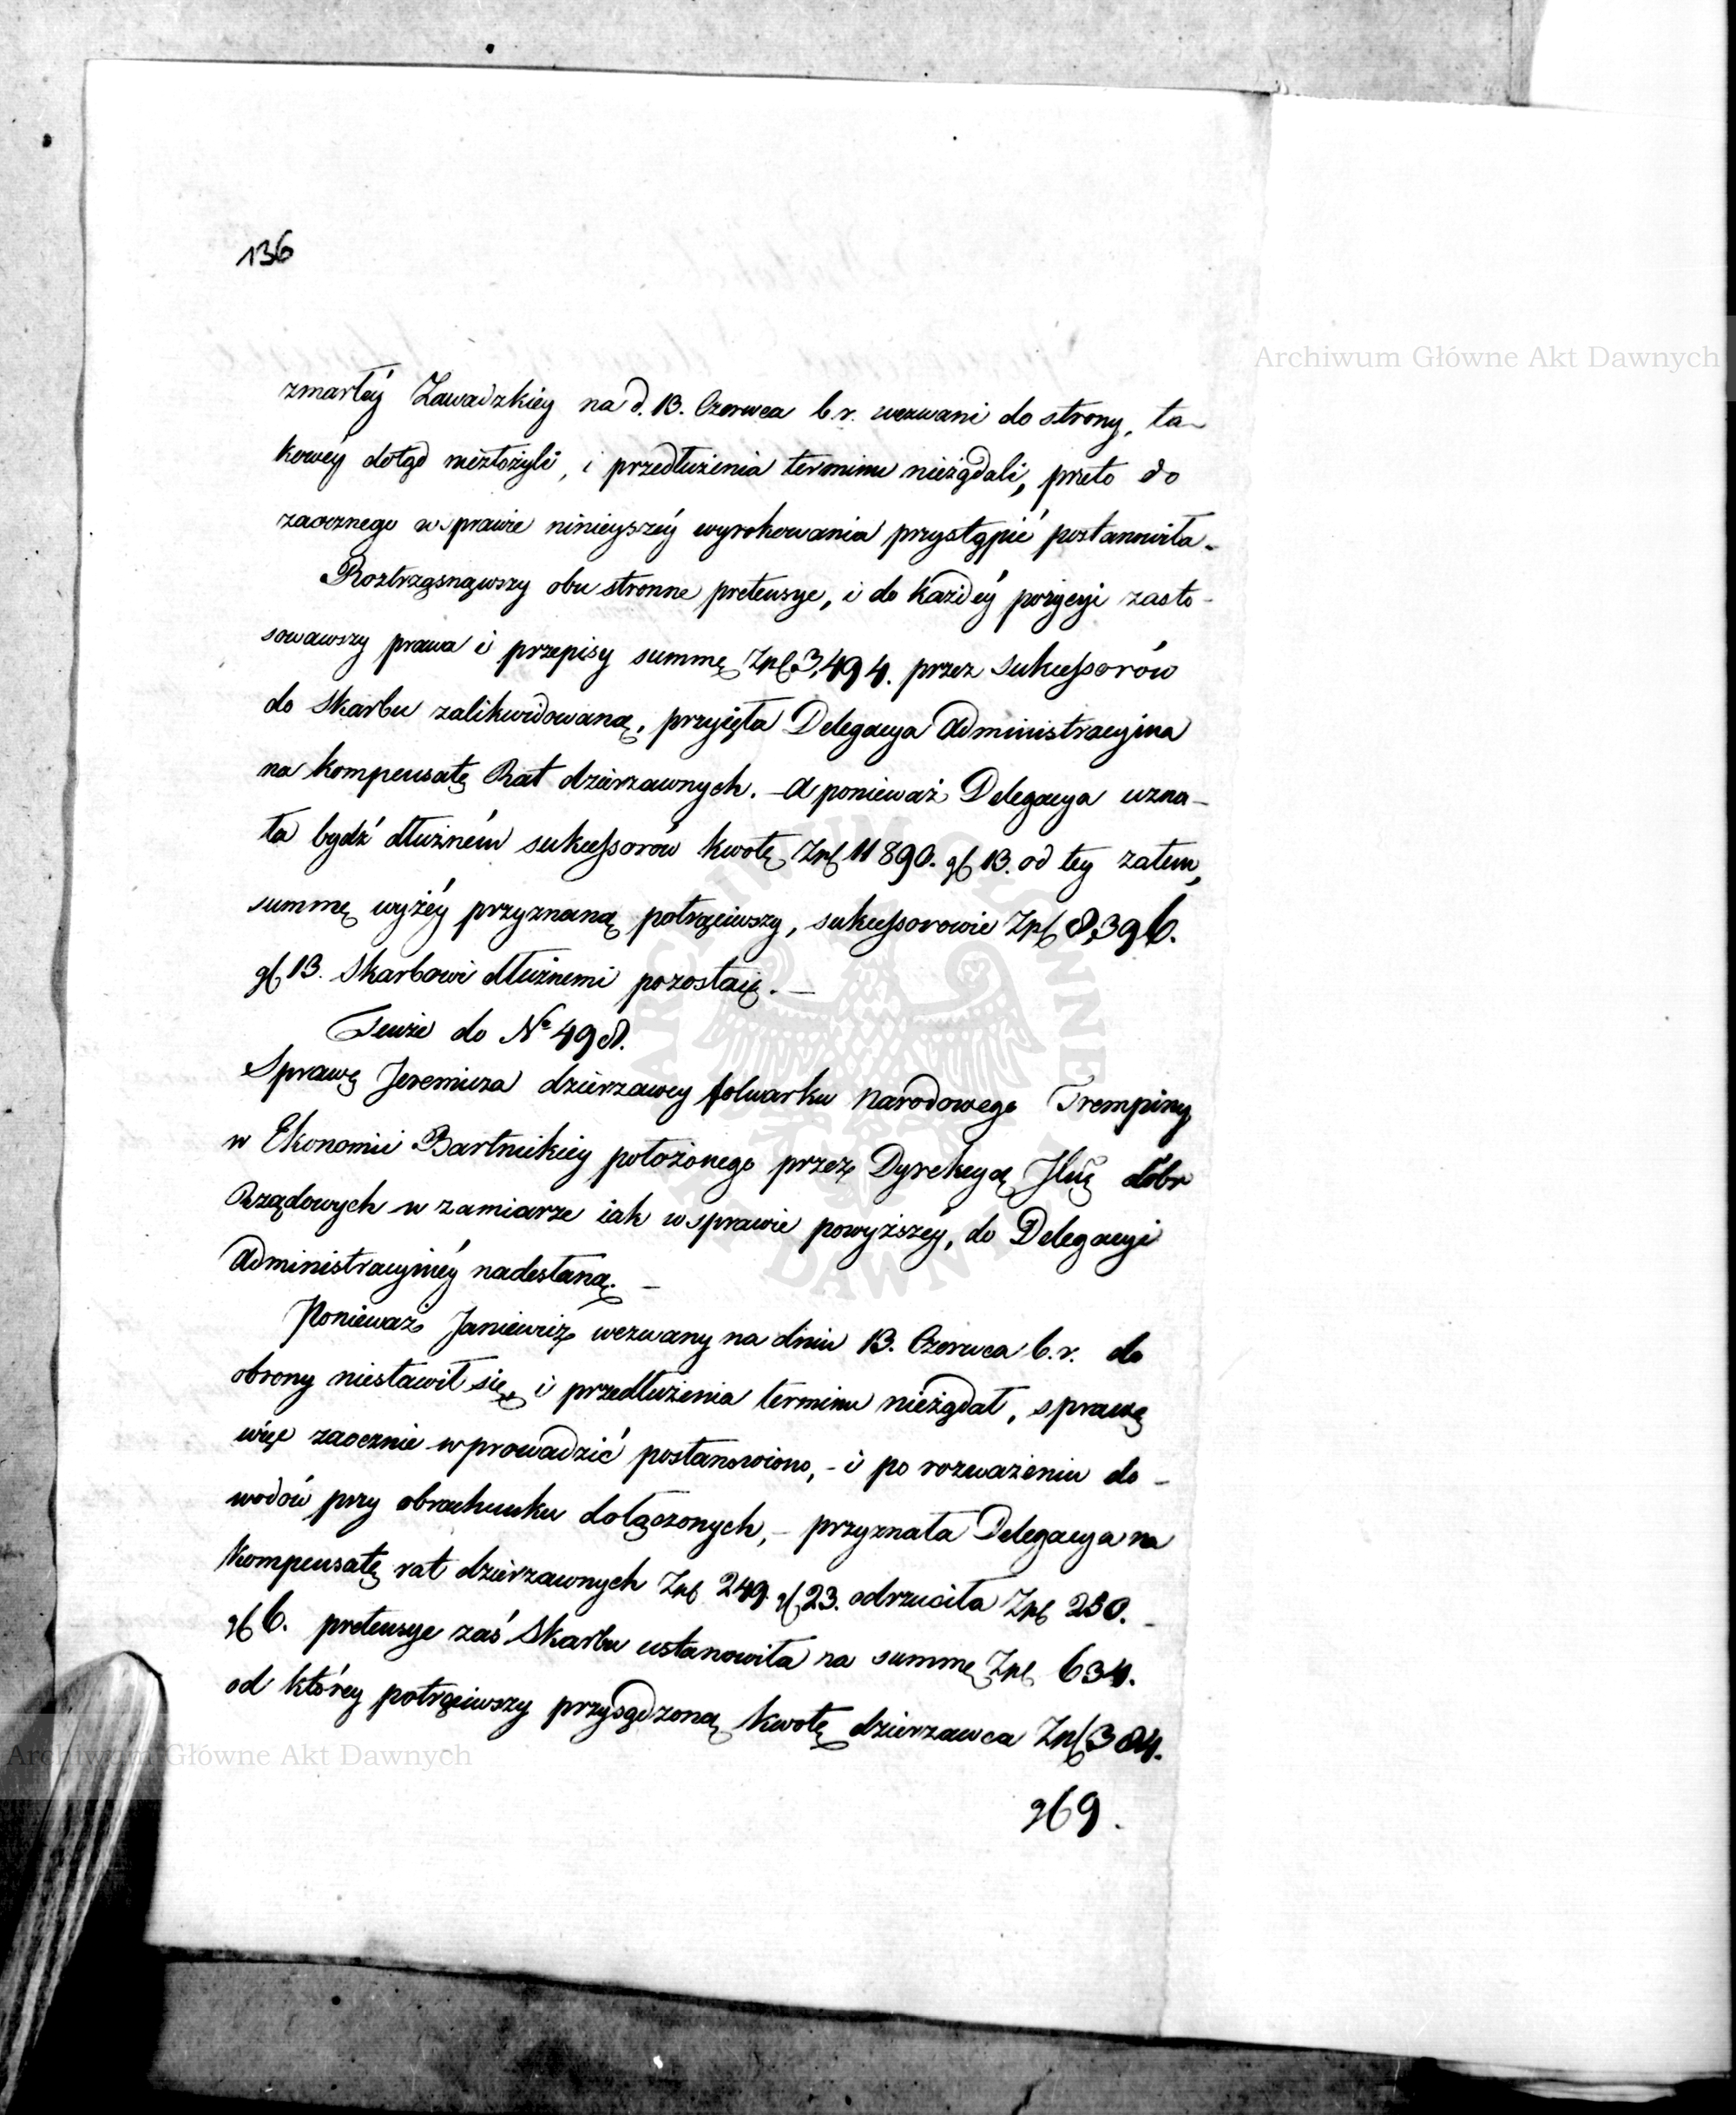 136
zmarłéy Zawadzkiey na d. 13. Czerwca b.r. wezwani do strony, ta-
kowéy dotąd niezłożyli, i przedłużenia terminu nieżądali, przeto do
zaocznego w sprawie ninieyszéy wyrokowania przystąpić postanowiła.
Roztrząsnąwszy obustronne pretensye, i do każdéy pozycyi zasto-
sowawszy prawa i przepisy summę Zpł. 3,494. przez sukcessorów
do Skarbu zalikwidowaną, przyięła Delegacya Administracyina
na kompensatę Rat dzierzawnych. – A ponieważ Delegacya uzna-
ła bydź dłużném sukcessorów kwotę Zpł 11890. gł 13. od tey zatem,
summę wyżéy przyznaną potrąciwszy, sukcessorowie Zpł 8,396.
gł 13. Skarbowi dłużnemi pozostaią. –
Tenże do No 498.
Sprawę Jeremicza dzierzawcy folwarku Narodowego Trempiny
w Ekonomii Bartnickiey położonego przez Dyrekcyą Jlną dóbr
Rządowych w zamiarze iak w sprawie powyższéy, do Delegacyi
Administracyinéy nadesłaną. –
Ponieważ Janiewicz wezwany na dniu 13. Czerwca b.r. do
obrony niestawił się, i przedłużenia terminu nieżądał, sprawę
więc zaocznie wprowadzić postanowiono, – i po rozważeniu do-
wodów przy obrachunku dołączonych, – przyznała Delegacya na
kompensatę rat dzierzawnych Zpł 249. gł 23. odrzuciła Zpł 250. –
gł 6. pretensye zaś Skarbu ustanowiła na summę Zpł 634.
od którey potrąciwszy przysądzoną kwotę dzierzawca Zpł 384.
gł 9.
Archiwum Główne Akt Dawnych
Archiwum Główne Akt Dawnych
ARCHIWUM GŁÓWNE AKT DAWNYCH